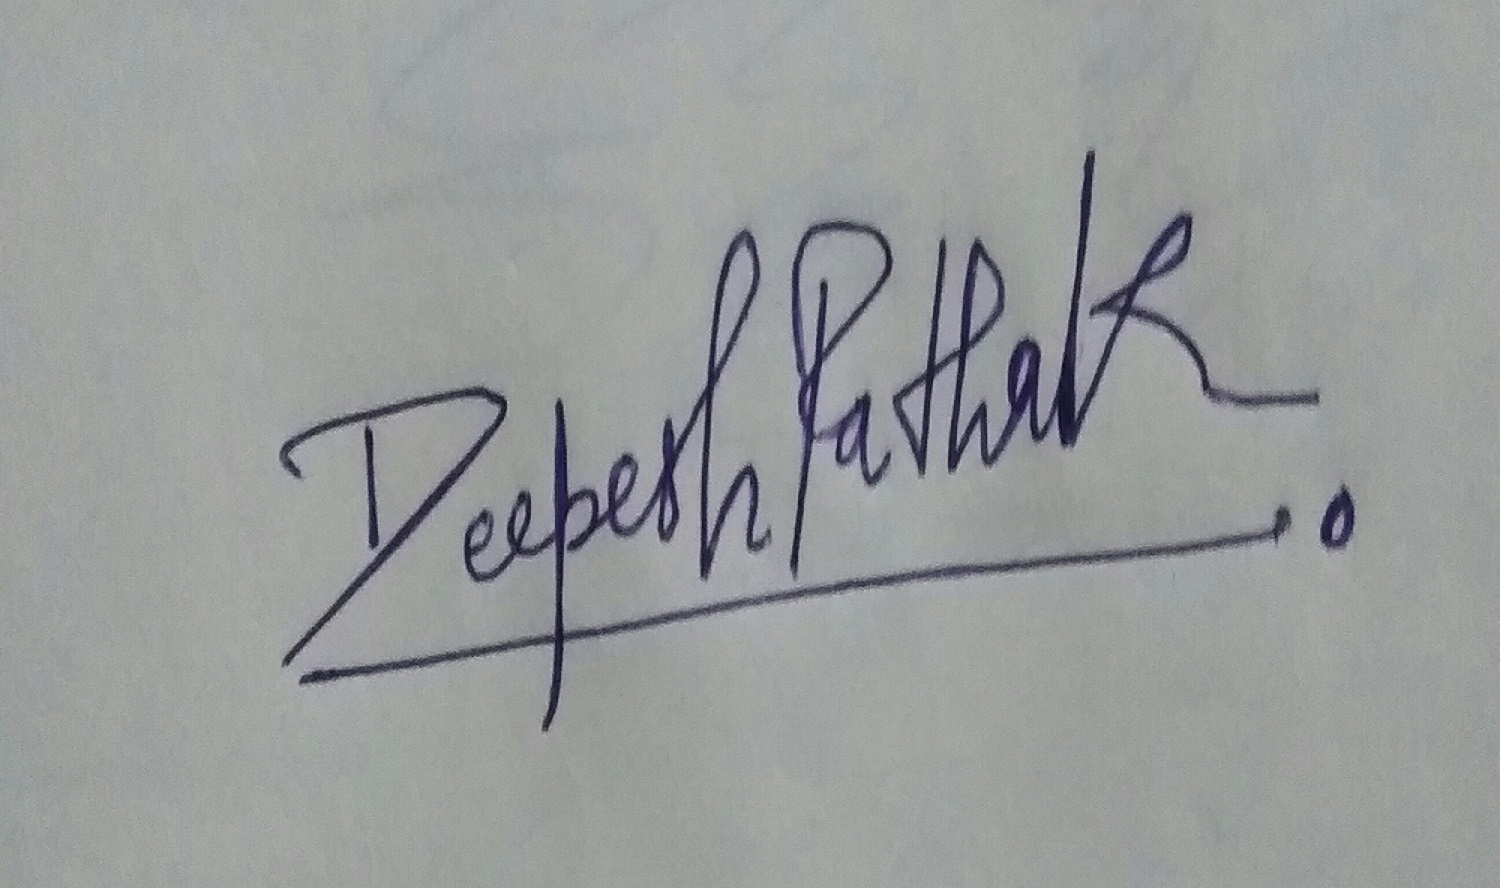 Deepesh Pathak